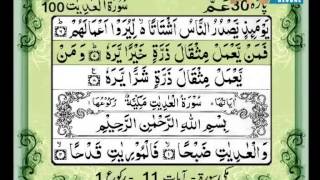 پارہ 30 عم سورۃ العٰدیٰت 100
يَوْمَئِذٍ يَّصْدُرُ النَّاسُ اَشْتَاتًا ۙ لِّيُرَوْا اَعْمَالَهُمْ ؕ
فَمَنْ يَّعْمَلْ مِثْقَالَ ذَرَّةٍ خَيْرًا يَّرَهٗ ؕ وَمَنْ
يَّعْمَلْ مِثْقَالَ ذَرَّةٍ شَرًّا يَّرَهٗ
اٰیاتها سُوْرَةُ الْعٰدِيٰتِ مَكِّيَّةٌ رکوعها
بِسْمِ اللّٰهِ الرَّحْمٰنِ الرَّحِيْمِ
وَالْعٰدِيٰتِ ضَبْحًا ۙ فَالْمُوْرِيٰتِ قَدْحًا ۙ
مکی سورۃ - آیات 11 - رکوع 1